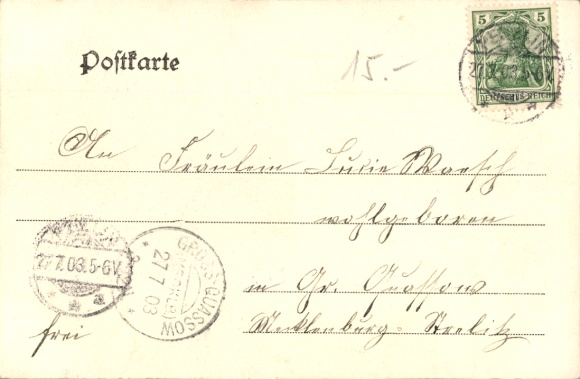 Postkarte
15.-
5 5
DEUTSCHES REICH
An Fräulein Lucie Waesch
wohlgeboren
27.7.03.5-6V.
GROSS QUASSOW
27 7 03
in Gr. Quassow
frei
Mecklenburg-Strelitz